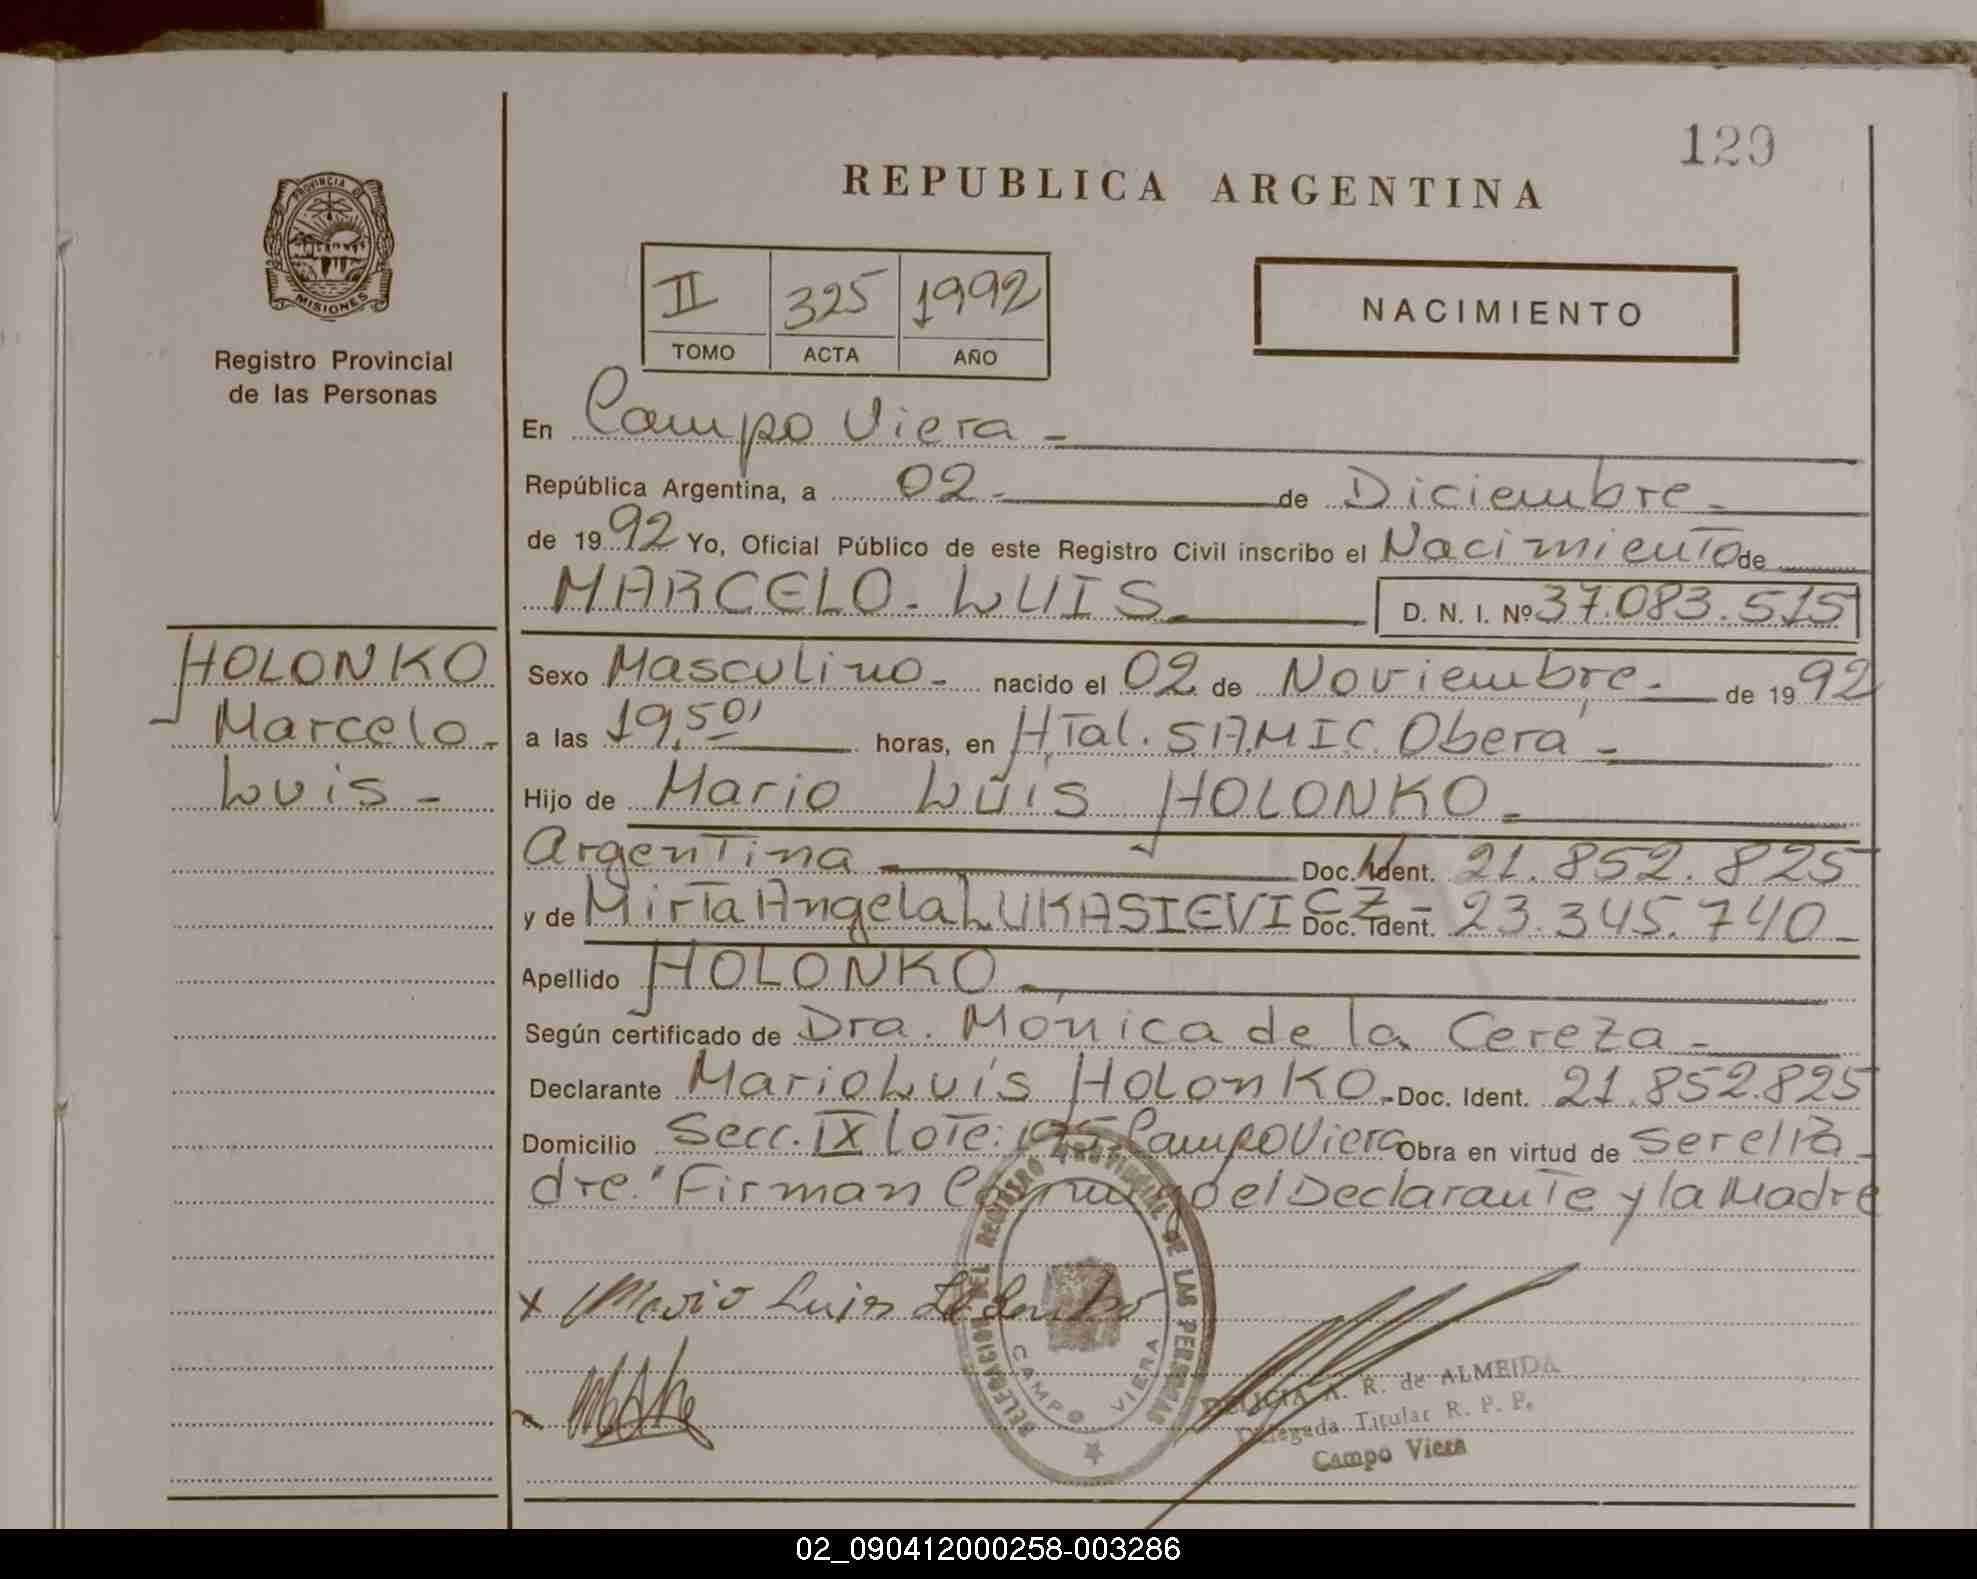 129
REPUBLICA ARGENTINA
PROVINCIA DE
MISIONES
Registro Provincial
de las Personas
II 325 1992
TOMO ACTA AÑO
NACIMIENTO
En Campo Viera -
República Argentina, a 02 - de Diciembre -
de 1992 Yo, Oficial Público de este Registro Civil inscribo el Nacimiento de
MARCELO - LUIS - D. N. I. Nº 37.083.515
HOLONKO
Marcelo -
Luis -
Sexo Masculino - nacido el 02 de Noviembre - de 1992
a las 19,50' horas, en HTal. S.A.M.I.C. Oberá -
Hijo de Mario Luis HOLONKO -
Argentina - Doc. Ident. 21.852.825
y de Mirta Angela LUKASIEVICZ - Doc. Ident. 23.345.740 -
Apellido HOLONKO -
Según certificado de Dra. Mónica de la Cereza -
Declarante Mario Luis HOLONKO - Doc. Ident. 21.852.825
Domicilio Secc. IX Lote: 195 Campo Viera Obra en virtud de ser el Pa
dre." Firman Conmigo el Declarante y la Madre
x Mario Luis Holonko
DELEGACION DEL REGISTRO PROVINCIAL DE LAS PERSONAS
CAMPO VIERA
A. R. de ALMEIDA
Delegada Titular R. P. P.
Campo Viera
02_090412000258-003286